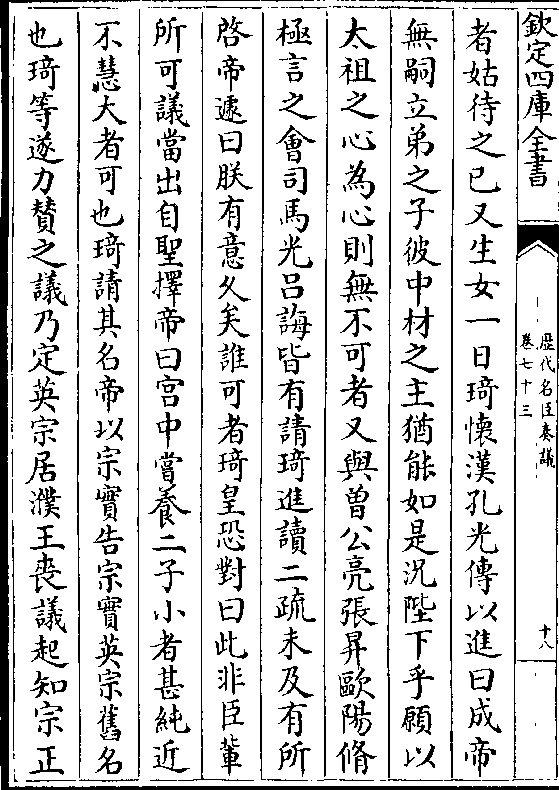 欽定四庫全書
歴代名臣奏議
卷七十三
十八
者姑待之已又生女一日琦懷漢孔光傳以進曰成帝
無嗣立弟之子彼中材之主猶能如是況陛下乎願以
太祖之心為心則無不可者又與曾公亮張昇歐陽脩
極言之會司馬光吕誨皆有請琦進讀二疏未及有所
啓帝遽曰朕有意久矣誰可者琦皇恐對曰此非臣輩
所可議當出自聖擇帝曰宫中嘗養二子小者甚純近
不慧大者可也琦請其名帝以宗實告宗實英宗舊名
也琦等遂力賛之議乃定英宗居濮王喪議起知宗正